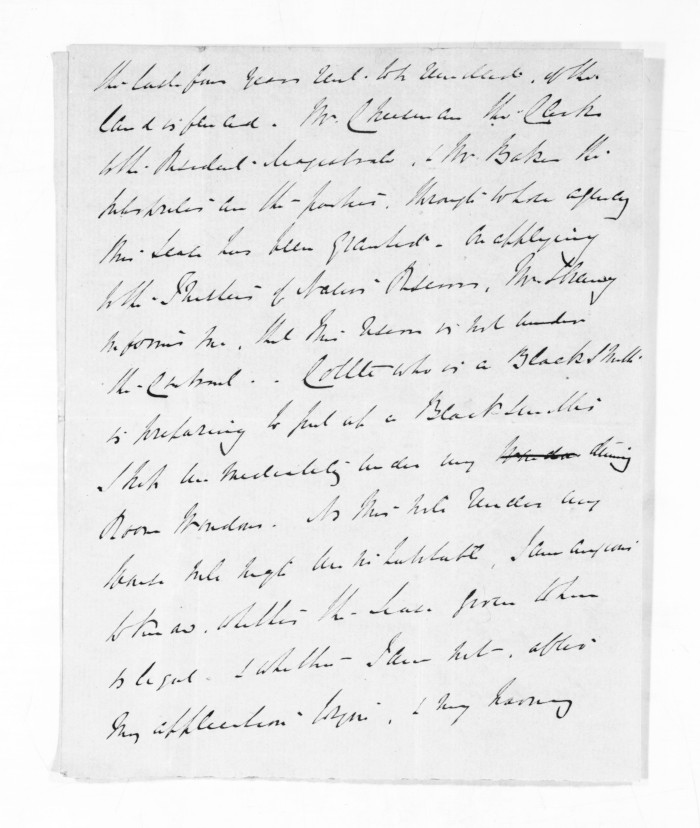 the last four years rent to be remitted, if the
land is fenced - Mr. Cheesman the Clerk
to the Resident Magistrate, & Mr. Baker the
Interpreter are the parties, through whose agency
this lease has been granted - On applying
to the Trustees of Native Reserves, Mr
informs me, that this reserve is not under
the Control - . Collte who is a Black Smith
is preparing to put up a Blacksmiths
Shop immediately under my dining
Room Windows. As this will render my
house uninhabitable, I am anxious
to know, whether the lease given to him
is legal - & whether I am not, after
my application to you, & my having